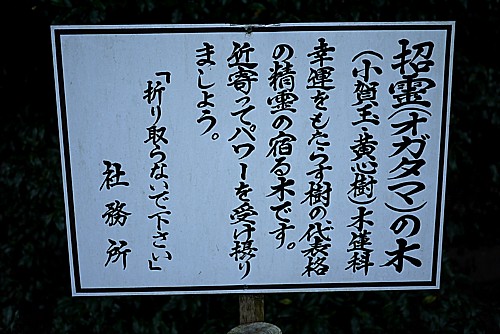 招霊(オガタマ)の木
(小賀玉・黄心樹)木蓮科
幸運をもたらす樹の代表格
の精霊の宿る木です。
近寄ってパワーを受け採り
ましょう。
「折り取らないで下さい」
社務所